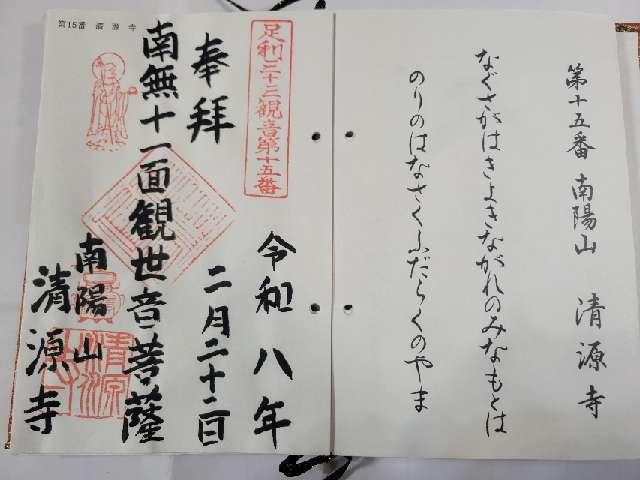 第十五番 南陽山 清源寺
なぐさがはきよきながれのみなもとは
のりのはなさくふだらくのやま
足利三十三観音第十五番
令和八年
奉拝 二月二十二日
南無十一面観世音菩薩
南陽山
清源寺
第15番 清源寺
清源